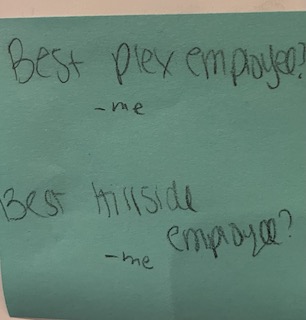 Best plex employee?
-me
Best Hillside
employee?
-me